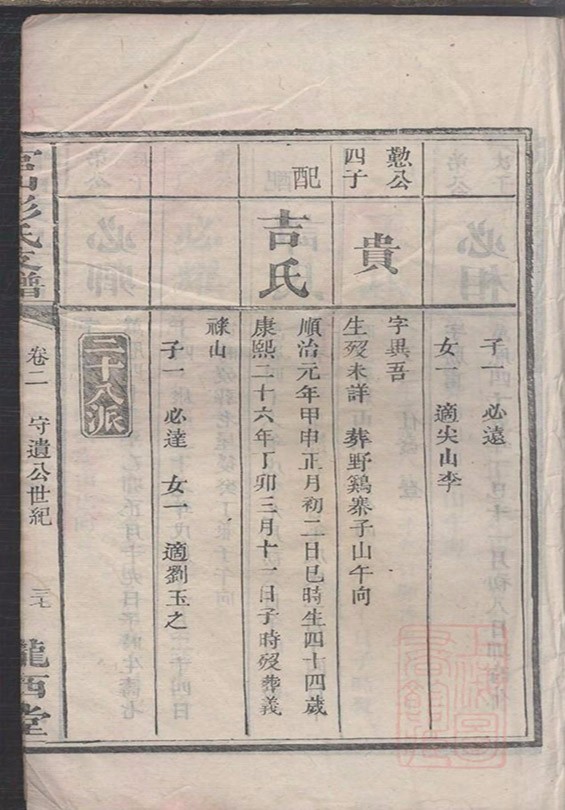 子一 必遠
女一 適尖山李
懃公
四子
貴
字異吾
生歿未詳 葬野鷄寨子山午向
配
吉氏
順治元年甲申正月初二日巳時生四十四歲
康熙二十六年丁卯三月十二日子時歿葬義
祿山
子一 必達 女一 適劉玉之
二十八派
彭氏支譜
卷二 守遺公世紀
三七
隴西堂